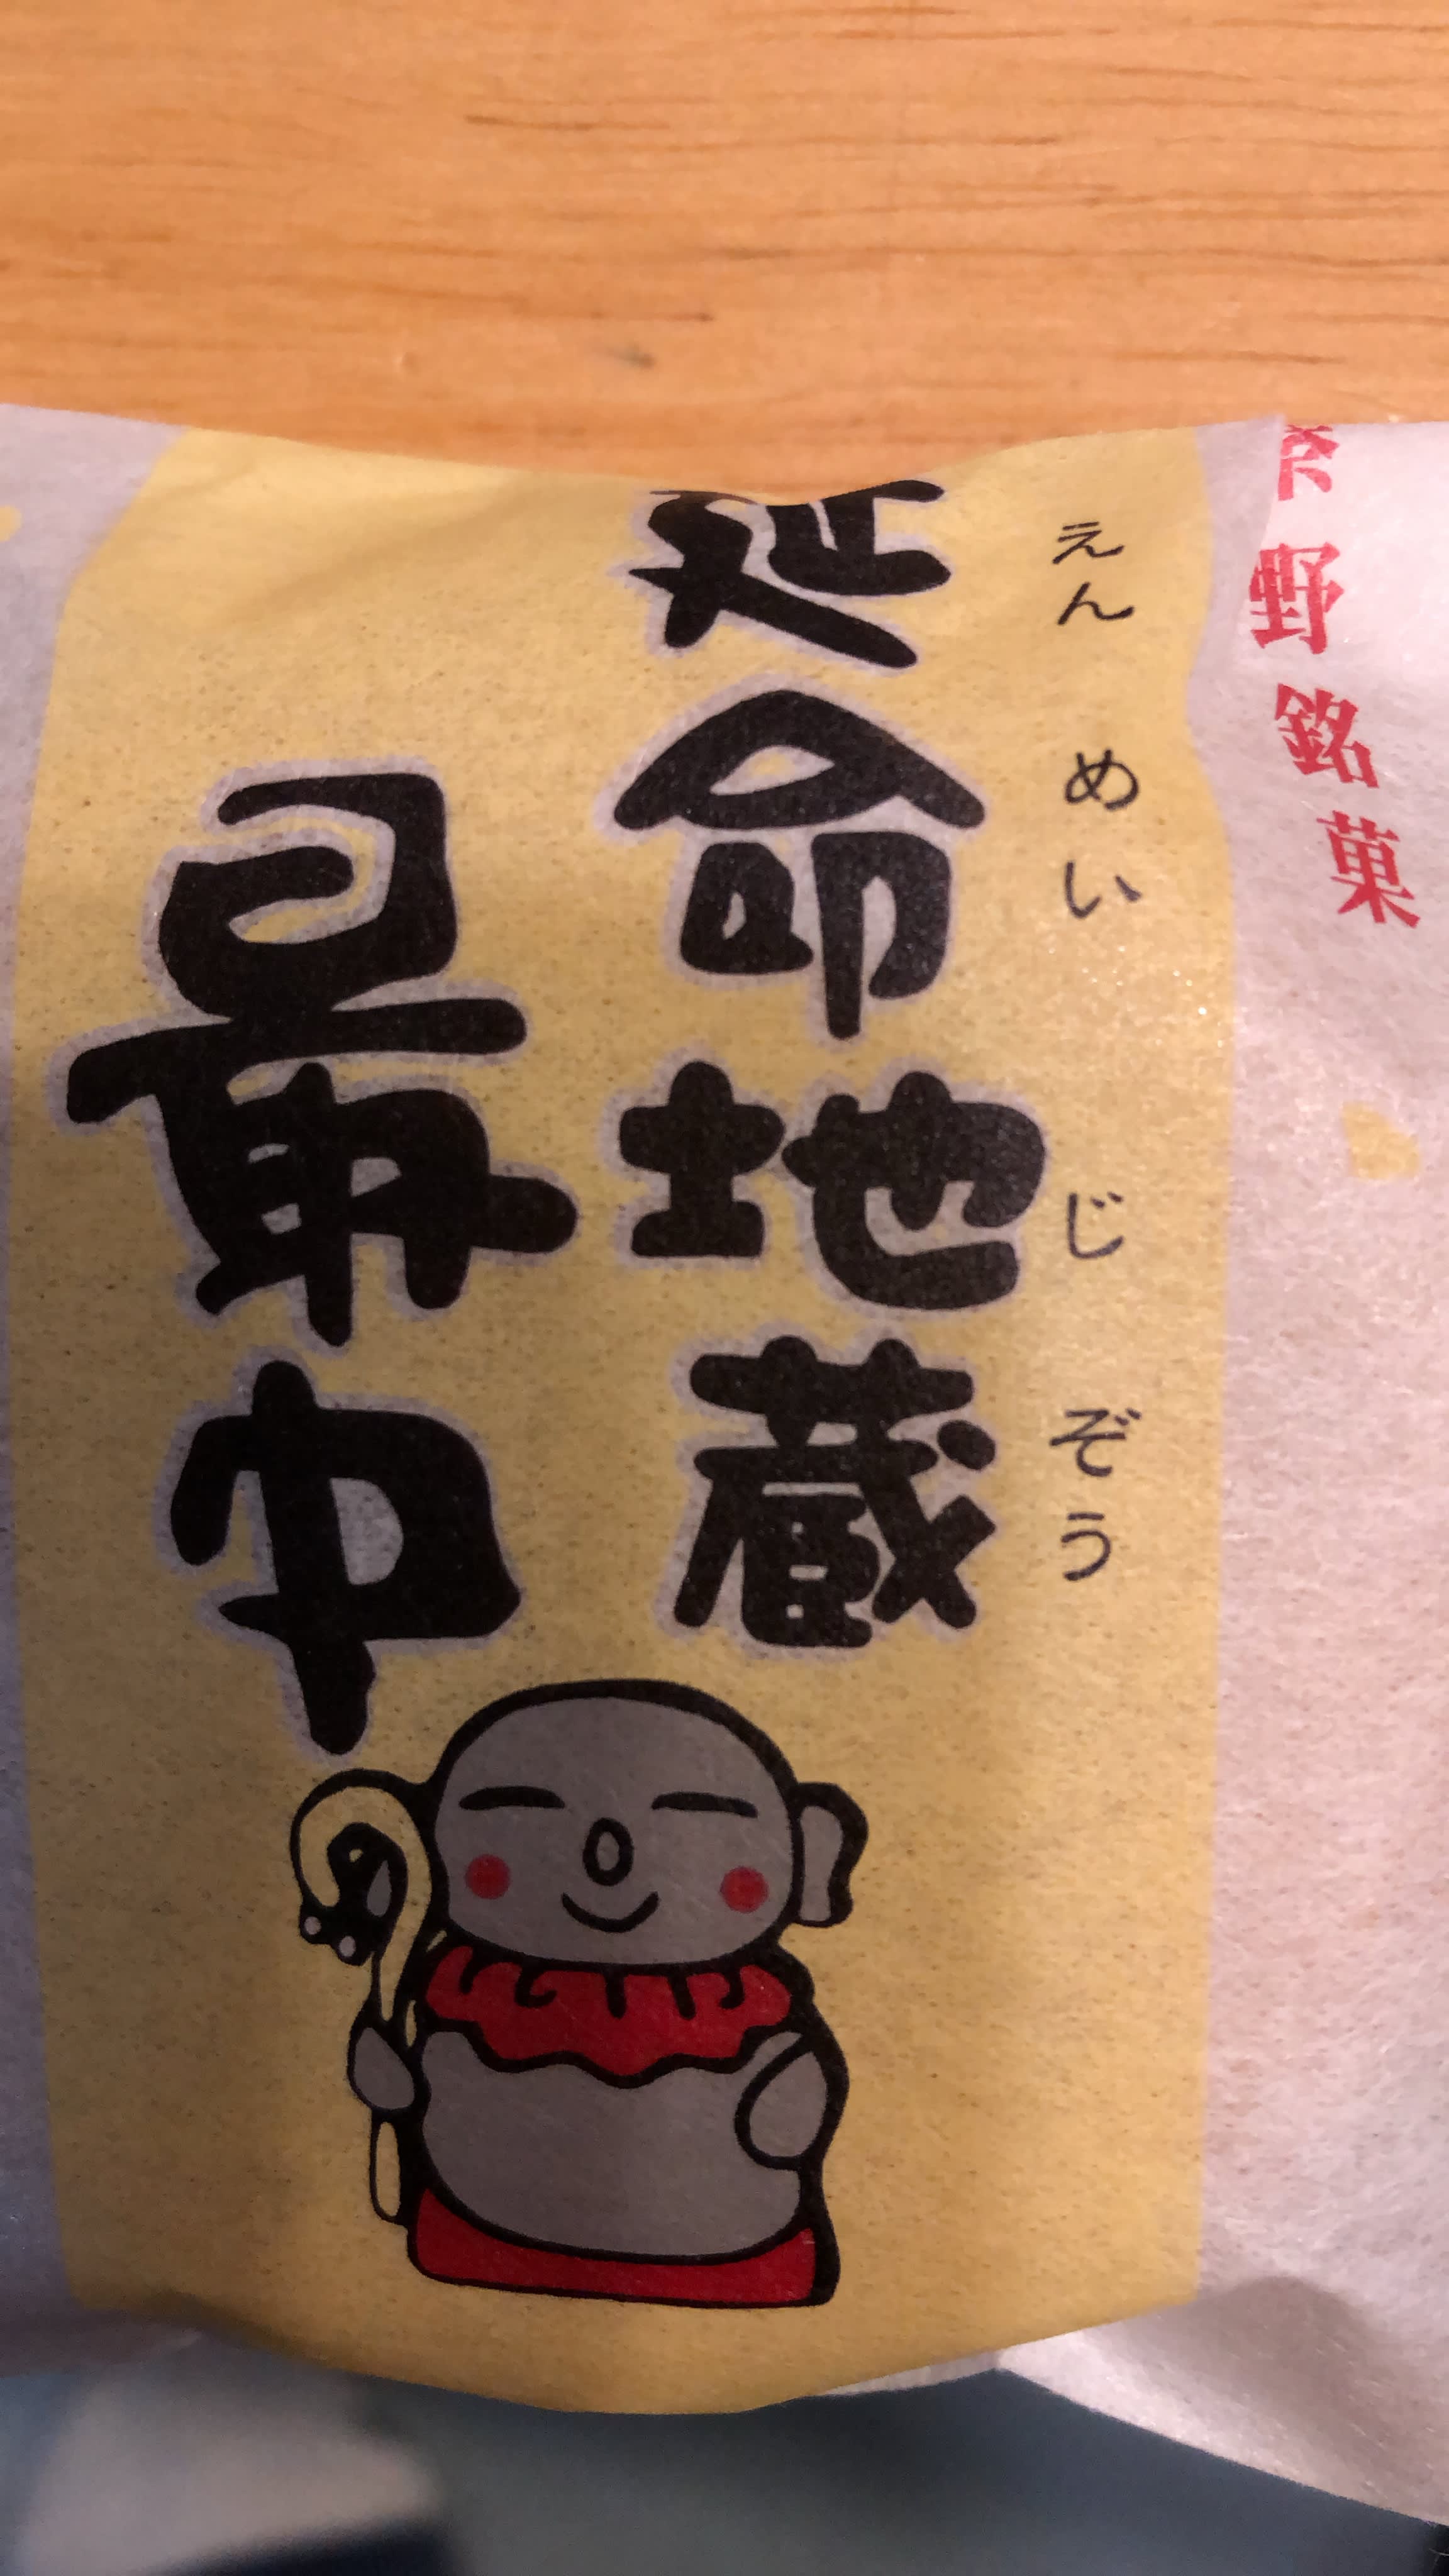 野銘菓
えんめいじぞう
延命地蔵
最中